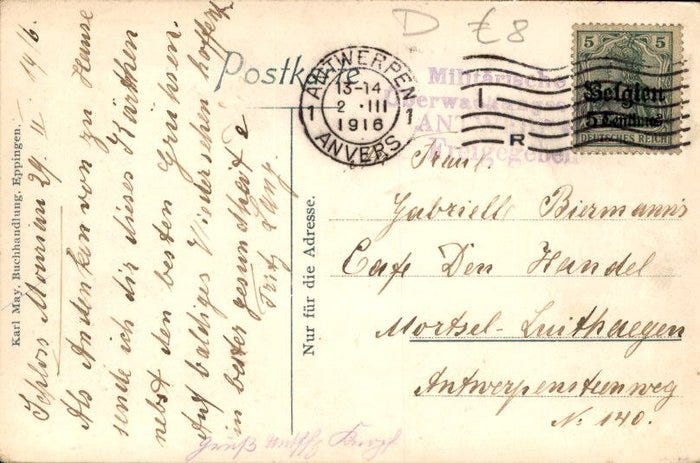 Karl May, Buchhandlung, Eppingen.
Schloss 29. II. 1916.
Als Andenken von zu Hause
sende ich dir dieses Kärtchen
nebst den besten Grüssen.
Auf baldiges Wiedersehen hoffend
in bester gesundheit
Fritz
Gruß
Postkarte
Nur für die Adresse.
D £8
ANTWERPEN
13-14
2 III
1916
1 1
ANVERS
R
Militärische
Überwachungs
ANT
Freigegeben
5 5
Belgien
5 Centimes
DEUTSCHES REICH
Gabrielle Biermans
Cafe Den Handel
Mortsel-Luithaegen
Antwerpensteenweg
No 140.